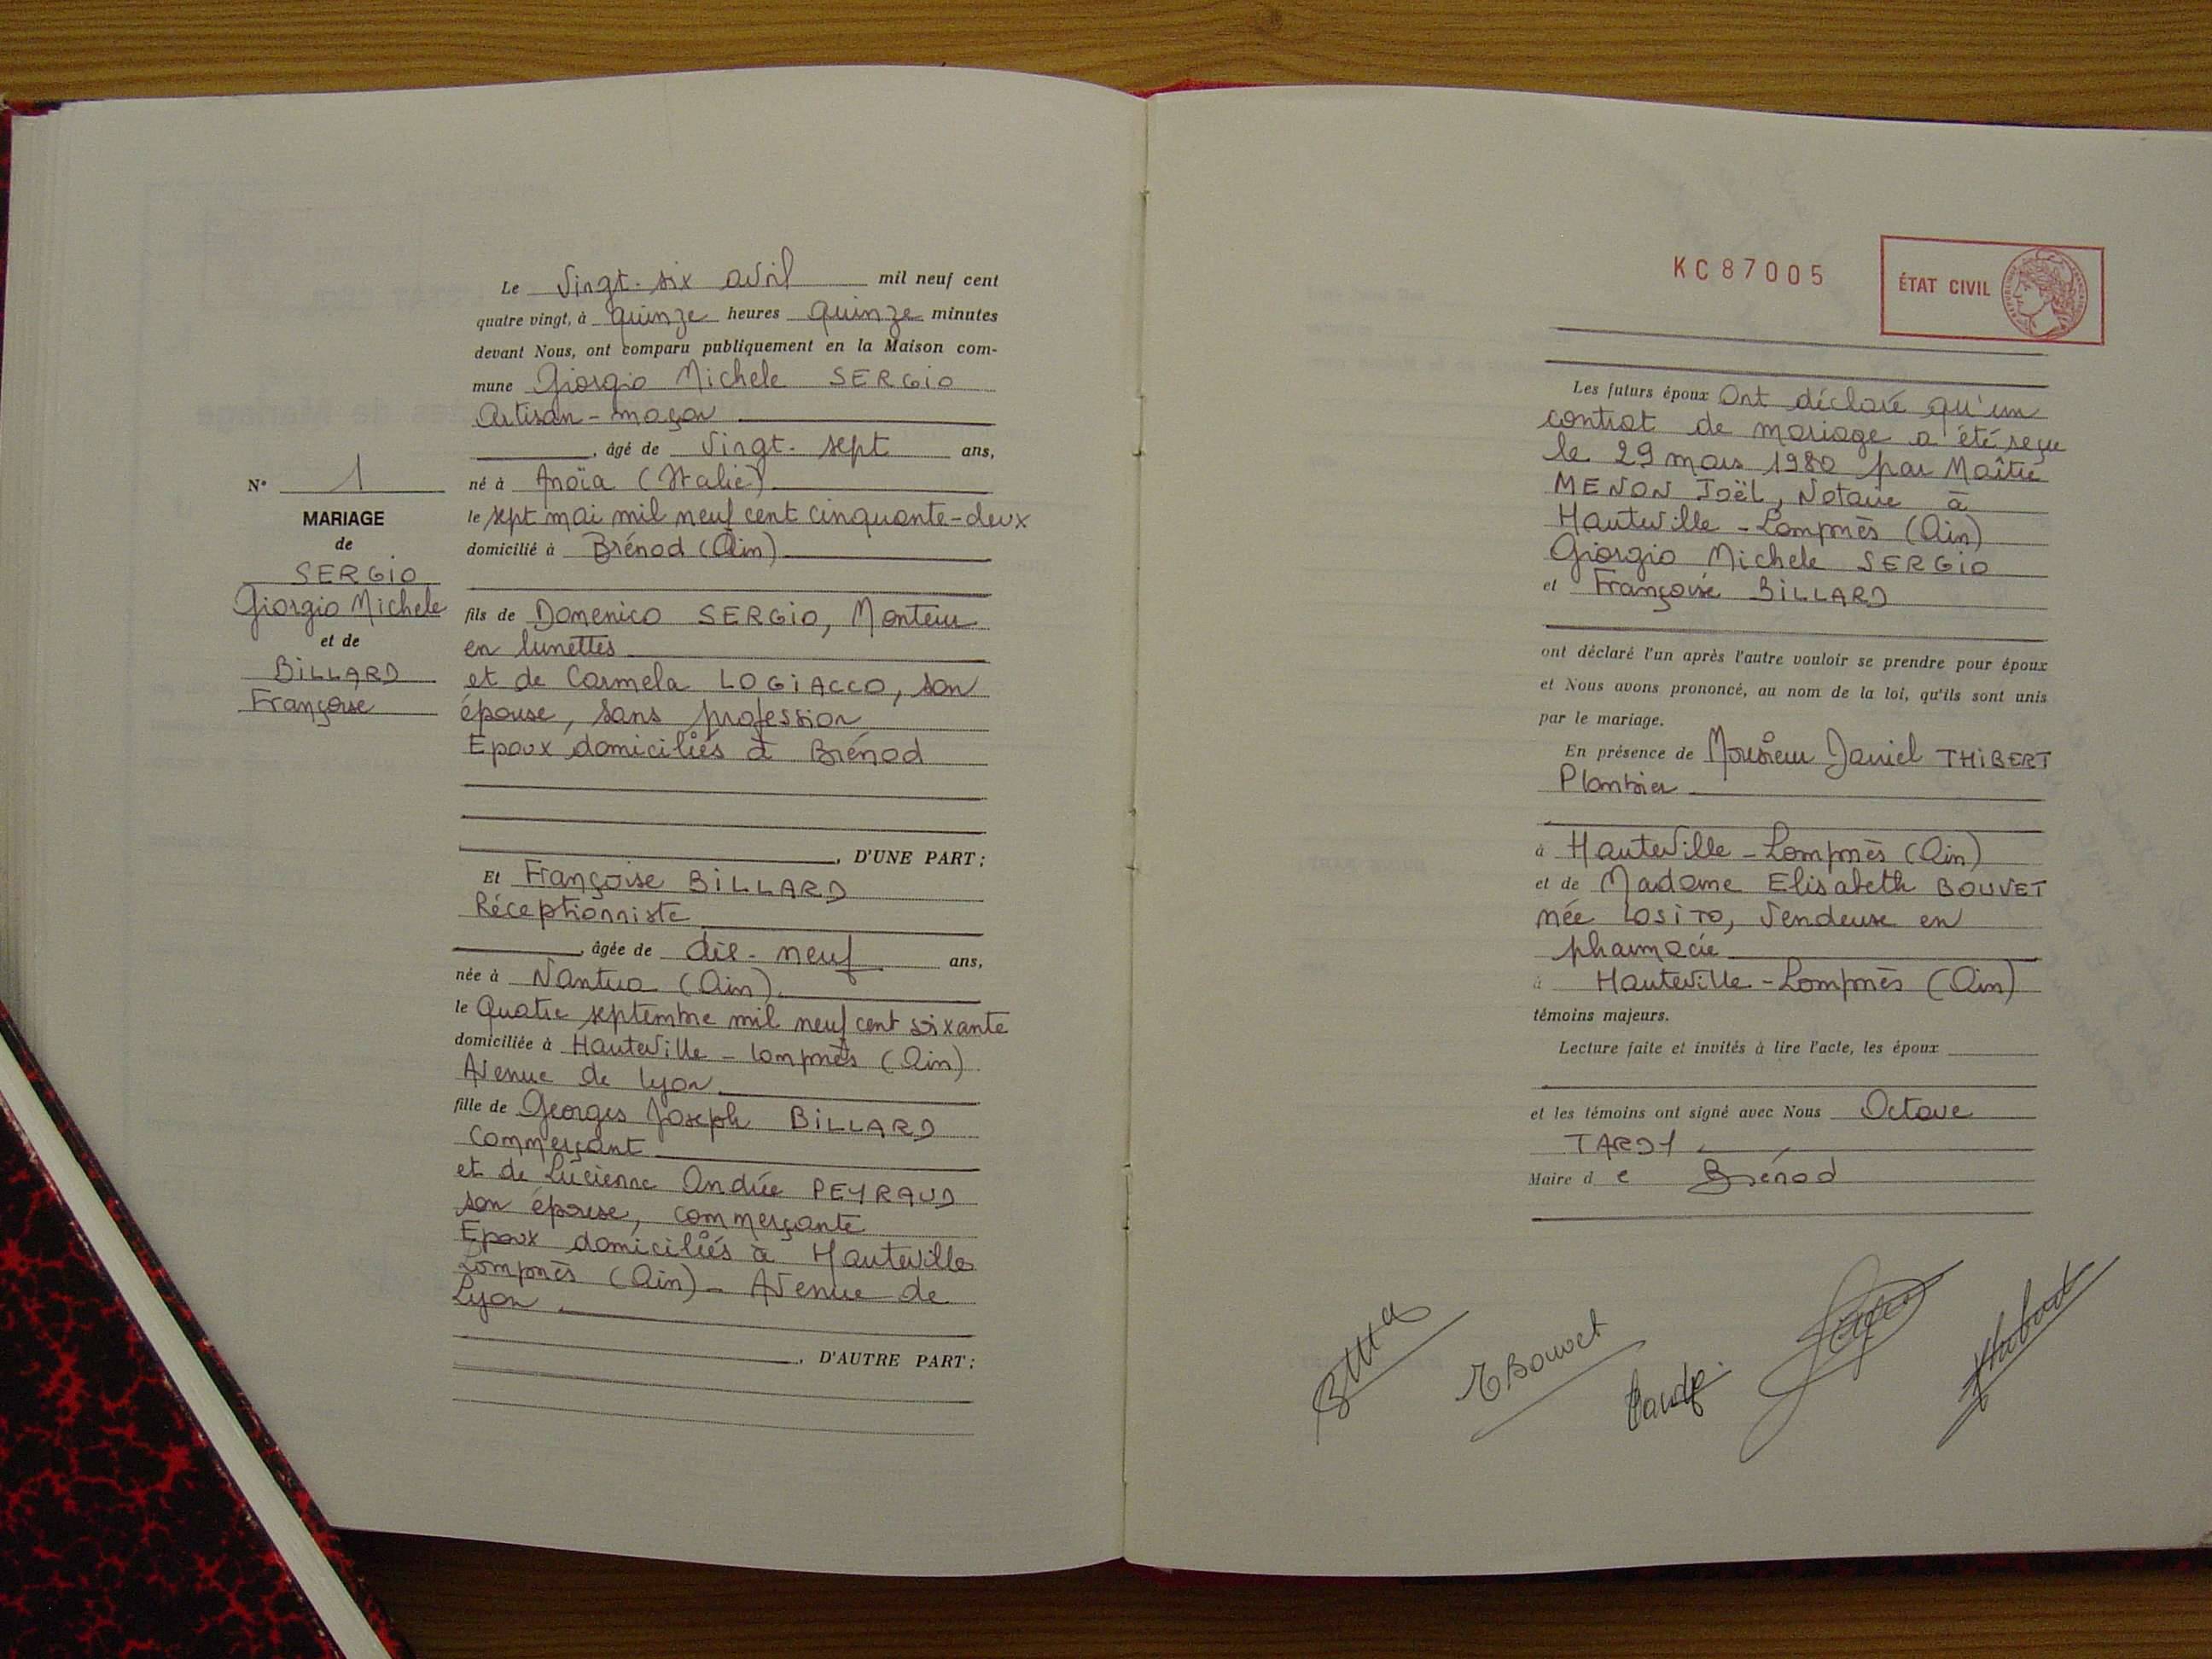 Le vingt-six avril mil neuf cent
quatre vingt, à quinze heures quinze minutes
devant Nous, ont comparu publiquement en la Maison com-
mune Giorgio Michele SERGIO
Artisan-maçon
, âgé de vingt-sept ans,
né à Anoïa (Italie)
le sept mai mil neuf cent cinquante-deux
domicilié à Brénod (Ain)
N° 1
MARIAGE
de
SERGIO
Giorgio Michele
et de
BILLARD
Françoise
fils de Domenico SERGIO, Monteur
en lunettes
et de Carmela LOGIACCO, son
épouse, sans profession
Epoux domiciliés à Brénod
, D'UNE PART ;
Et Françoise BILLARD
Réceptionniste
, âgée de dix-neuf ans,
née à Nantua (Ain)
le Quatre septembre mil neuf cent soixante
domiciliée à Hauteville-Lompnès (Ain)
Avenue de Lyon
fille de Georges Joseph BILLARD
commerçant
et de Lucienne Andrée PEYRAUD
son épouse, commerçante
Epoux domiciliés à Hauteville
Lompnès (Ain) - Avenue de
Lyon
, D'AUTRE PART ;
KC87005
ÉTAT CIVIL
Les futurs époux Ont déclaré qu'un
contrat de mariage a été reçu
le 29 mars 1980 par Maître
MENON Joël, Notaire à
Hauteville-Lompnès (Ain)
Giorgio Michele SERGIO
et Françoise BILLARD
ont déclaré l'un après l'autre vouloir se prendre pour époux
et Nous avons prononcé, au nom de la loi, qu'ils sont unis
par le mariage.
En présence de Monsieur Daniel THIBERT
Plombier
à Hauteville-Lompnès (Ain)
et de Madame Elisabeth BOUVET
née LOSITO, Vendeuse en
pharmacie
à Hauteville-Lompnès (Ain)
témoins majeurs.
Lecture faite et invités à lire l'acte, les époux
et les témoins ont signé avec Nous Octave
TARDY
Maire de Brénod
E Bouvet